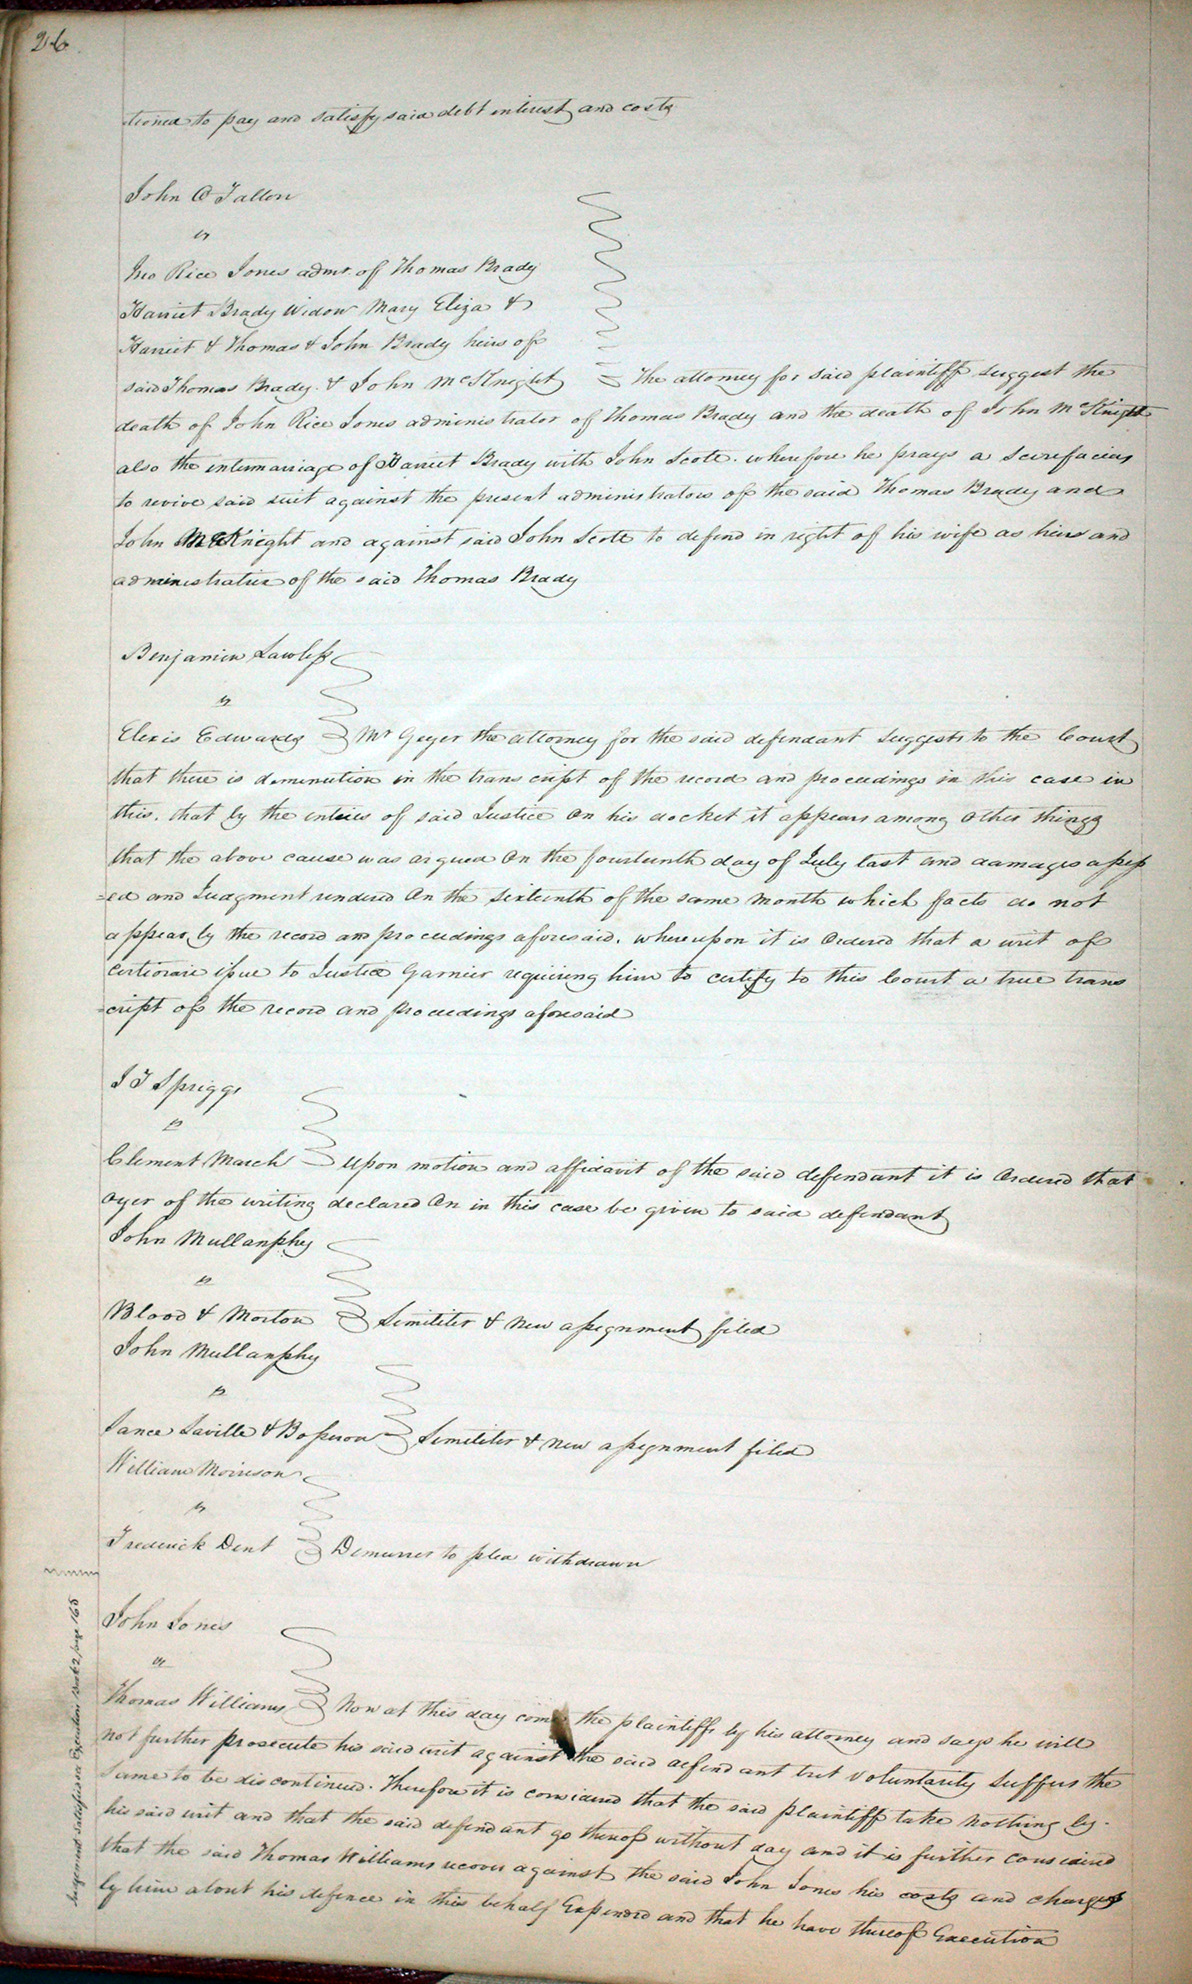 26
tioned to pay and satisfy said debt interest and costs
John O Fallon
vs
Jno Rice Jones admr. of Thomas Brady
Harriet Brady Widow Mary Eliza &
Harriet & Thomas & John Brady heirs of
said Thomas Brady. & John McKnight The attorney for said plaintiff suggest the
death of John Rice Jones administrator of Thomas Brady and the death of John McKnight
also the intermarriage of Harriet Brady with John Scott. wherefore he prays a Scirefacias
to revive said suit against the present administrators of the said Thomas Brady and
John McKnight and against said John Scott to defend in right of his wife as heirs and
administratrix of the said Thomas Brady
Benjamin Lawless
vs
Elexis Edwards Mr Geyer the attorney for the said defendant suggests to the Court
that there is diminution in the transcript of the record and proceedings in this case in
this. that by the entries of said Justice on his docket it appears among other things
that the above cause was argued on the fourteenth day of July last and damages assess
=ed and Judgment rendered on the sixteenth of the same month which facts do not
appear by the record and proceedings aforesaid. whereupon it is ordered that a writ of
certiorari issue to Justice Garnier requiring him to certify to this Court a true trans
=cript of the record and proceedings aforesaid
J T Spriggs
vs
Clement March upon motion and affidavit of the said defendant it is ordered that
oyer of the writing declared on in this case be given to said defendant
John Mullanphy
vs
Blood & Morton Similiter & new assignment filed
John Mullanphy
vs
Lance Saville & Bosseron Similiter & new assignment filed
William Morrison
vs
Frederick Dent Demurrer to plea withdrawn
John Jones
vs
Thomas Williams Now at this day comes the plaintiff by his attorney and says he will
not further prosecute his said writ against the said defendant but voluntarily suffers the
same to be discontinued. Therefore it is considered that the said plaintiff take nothing by.
his said writ and that the said defendant go thereof without day and it is further considered
that the said Thomas Williams recover against the said John Jones his costs and charges
by him about his defence in this behalf Expended and that he have thereof Execution
Judgment satisfied see Execution Book 2 page 165